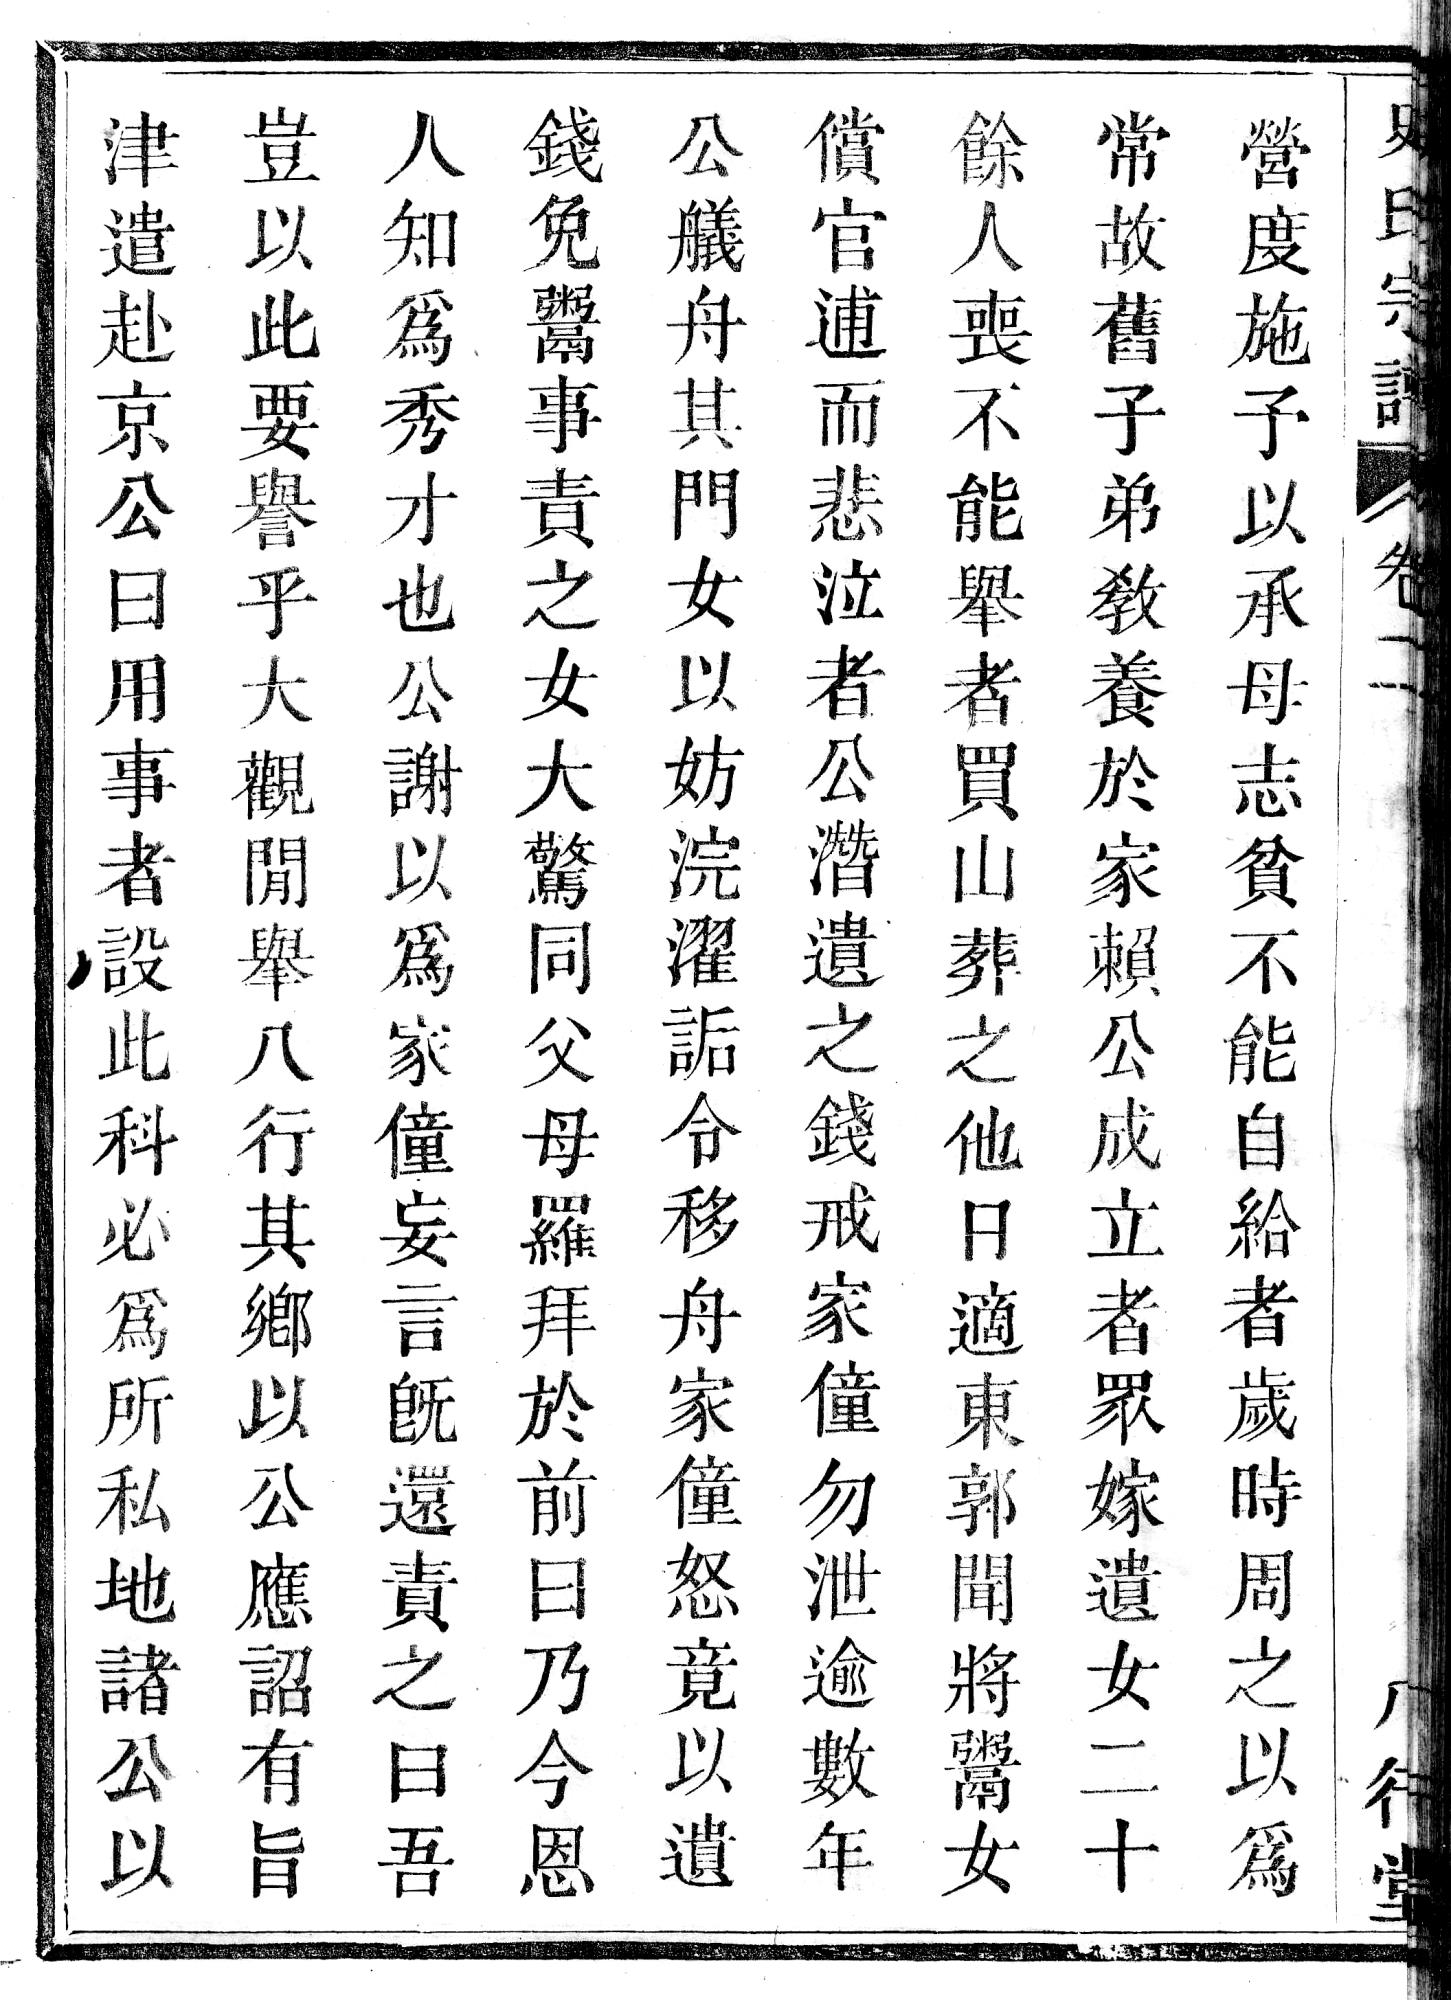 史氏宗譜 卷二 八行堂
營度施予以承母志貧不能自給者歲時周之以爲
常故舊子弟教養於家賴公成立者眾嫁遺女二十
餘人喪不能舉者買山葬之他日適東郭聞將鬻女
償官逋而悲泣者公潛遺之錢戒家僮勿泄逾數年
公艤舟其門女以妨浣濯詬令移舟家僮怒竟以遺
錢免鬻事責之女大驚同父母羅拜於前曰乃今恩
人知爲秀才也公謝以爲家僮妄言旣還責之曰吾
豈以此要譽乎大觀閒舉八行其鄉以公應詔有旨
津遣赴京公曰用事者設此科必爲所私地諸公以